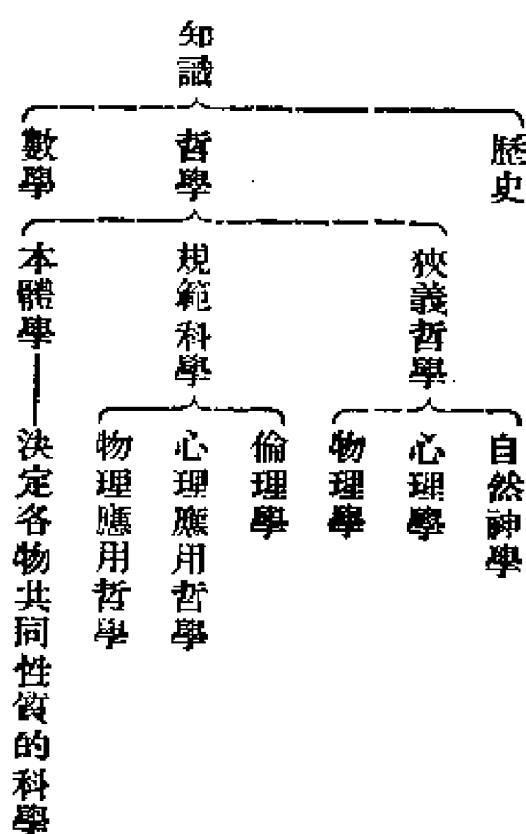 知識
歷史
哲學
數學
狹義哲學
規範科學
本體學——決定各物共同性質的科學
自然神學
心理學
物理學
倫理學
心理應用哲學
物理應用哲學